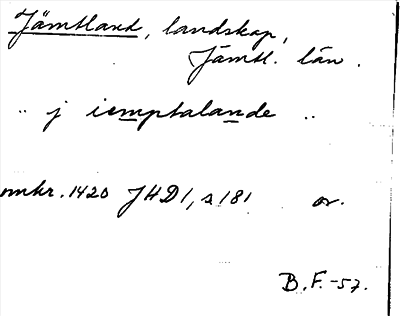 Jämtland, landskap,
Jämtl. län.
" j iemptalande "
omkr. 1420 JHD 1, s 181 or.
B.F.-57.